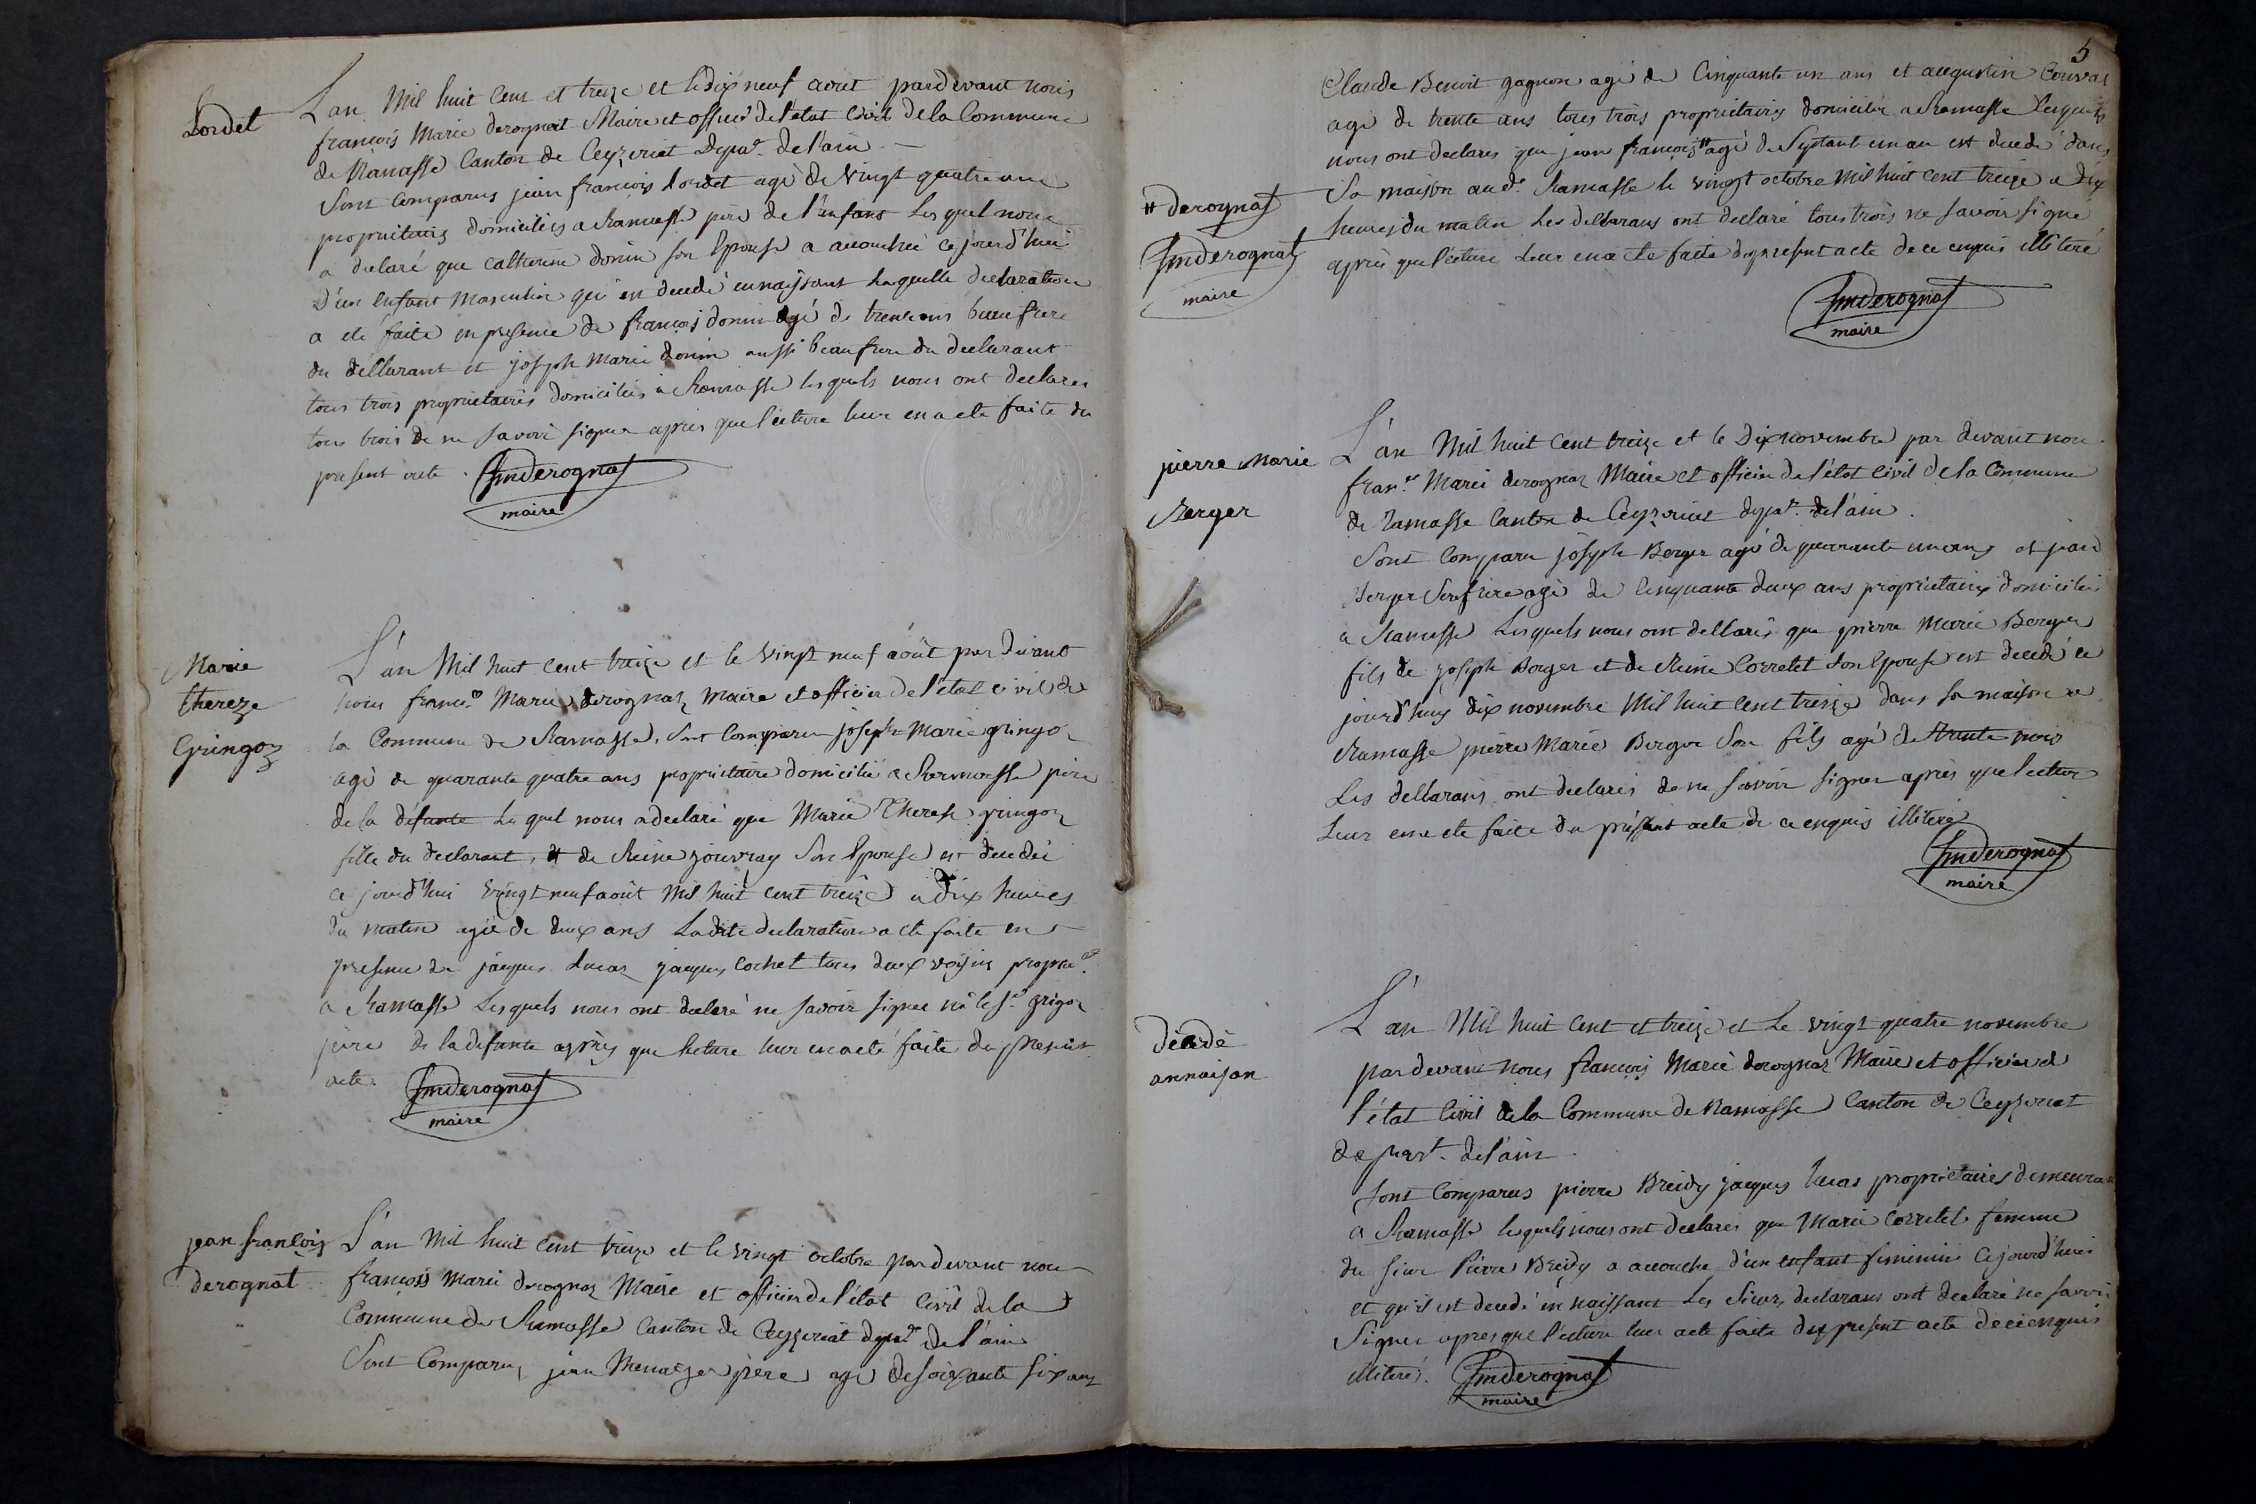 Lordet
L'an Mil huit Cent et treize et le dix neuf aout pardevant nous
françois Marie derognat Maire et officier de l'état Civil de la Commune
de Ramasse Canton de Ceyzeriat Depar. de l'ain
Sont Comparus jean françois Lordet agé de vingt quatre ans
propriétaires domiciliés a Ramasse père de l'enfant Lesquel nous
a declaré que catherine donin son Epouse a accouchée ce jourd'hui
d'un Enfant Masculin qui est decedé en naissant Laquelle declaration
a ete faite en presence de françois donin agé de trente ans beaufrere
du declarant et joseph Marie donin aussi beaufrere du declarant
tous trois proprietaires domiciliés a Ramasse lesquels nous ont declarés
tous trois de ne savoir signer après que lecture leur en a ete faite du
present acte. fmderognat
maire
Marie
thereze
Gringoz
L'an Mil huit Cent treize et le vingt neuf août par devant
nous franc. Marie derognaz maire et officier de l'état civil de
la Commune de Ramasse, Sont Comparus joseph Marie gringoz
agé de quarante quatre ans proprietaire domicilié a Ramasse père
de la défunte Lequel nous a declaré que Marie Therese gringoz
fille du declarant, et de Reine jouvray Son Epouse est decedée
ce jourd'hui vingt neuf août Mil huit cent treize a dix heures
du matin agée de deux ans Ladite declaration a ete faite en
presence de jacques Lucas jacques cochet tous deux voisins propre.
a Ramasse Lesquels nous ont declaré ne savoir signer ni le s. grigoz
père de la defunte après que lecture leur en a eté faite du present
acte. fmderognat
maire
jean françois
derognat
L'an Mil huit Cent treize et le vingt octobre pardevant nous
françois Marie derognaz Maire et officier de l'état Civil de la
Commune de Ramasse Canton de Ceyzeriat depar. de l'ain
Sont Comparus jean père agé de soixante six ans
5
Claude Benoit gagnon agé de Cinquante un ans et augustin Convas
agé de trente ans tous trois proprietaires domiciliés a Ramasse Lesquels
nous ont declarés que jean françois # agé de Septante un an est decedé dans
Sa maison aud. Ramasse le vingt octobre Mil huit Cent treize a dix
heures du matin Les dellarans ont declaré tous trois ne savoir signé
après que l'ecture Leur en a ete faite du present acte de ce enquis illiteré
# derognat
fmderognat
maire
fmderognat
maire
pierre Marie
Berger
L'an Mil huit Cent treize et le Dix novembre par devant nous
fran. Marie derognaz Maire et officier de l'état Civil de la Commune
de Ramasse Canton de Ceyzeriat depar. de l'ain.
Sont Comparu joseph Berger agé de quarante un ans et
Berger Son frere agé de Cinquante deux ans proprietaires domiciliés
a Ramasse Lesquels nous ont dellarés que pierre Marie Berger
fils de joseph Berger et de Reine Corretet Son Epouse est decedé ce
jourd'huy dix novembre Mil huit Cent treize dans Sa maison a
Ramasse pierre Marie Berger Son fils agé de trente mois
Les dellarans ont declarés de ne Savoir Signer après que l'ecture
Leur en a ete faite du présent acte de ce enquis illiteré
fmderognat
maire
décédé
annaisan
L'an Mil huit Cent et treize et Le vingt quatre novembre
pardevant Nous françois Marie derognaz Maire et officier de
l'état Civil de la Commune de Ramasse Canton de Ceyzeriat
depart. de l'ain.
Sont Comparus pierre Breidy jacques lucas proprietaires demeuran
a Ramasse lesquels nous ont declarés que Marie Corretet femme
du Sieur Pierre Breidy a accouche d'un enfant feminin Cejourd'hui
et qu'il est decedé en naissant Les Sieurs declarans ont declaré ne savoir
Signer apres que l'ecture leur acte faite du present acte de ce enquis
illiteré. fmderognat
maire